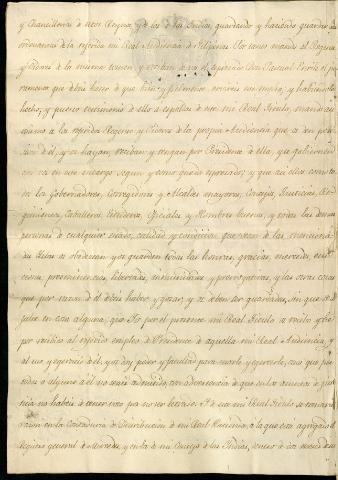 y Chancillerias de estos Reynos y de los de las Indias, guardando y haciendo guardar las
ordenanzas de la referida mi Real Audiencia de Filipinas. Por tanto mando al Regente
y Oidores de la misma tomen y reciban de vos el expresado Don Pascual Enrile el ju-
ramento que debeis hacer de que bien y fielmente servireis este empleo, y habiendolo
hecho, y puesto testimonio de ello a espaldas de este mi Real Titulo, mando asi-
mismo a la referida Regente y Oidores de la propia Audiencia que os den pose-
sion de él, y os hayan, reciban y tengan por Presidente de ella, que
va en este encargo segun y como queda expresado; y que asi ellos como to-
dos los Gobernadores, Corregidores y Alcaldes mayores, Concejos, Justicias, Re-
gidores, Caballeros, Escuderos, Oficiales y Hombres buenos, y todas las demas
personas de cualquier estado, calidad y condicion que sean de las menciona-
das Islas os obedezcan y os guarden todas las honras, gracias, mercedes, esen-
ciones, preeminencias, libertades, inmunidades y prerrogativas, y las otras cosas
que por razon de él debeis haber y gozar, y os deben ser guardadas, sin que os
falte en cosa alguna; que Yo por el presente mi Real Titulo os recibo y he
por recibido al referido empleo de Presidente de aquella mi Real Audiencia, y
al uso y egercicio de él, y os doy poder y facultad para usarlo y egercerlo, caso que por
ellos o alguno a él no seais admitido, con advertencia de que en los asuntos de justi-
cia no habeis de tener voto por no ser letrado. Y de este mi Real Titulo se tomará
razon en la Contaduria de Distribucion de mi Real Hacienda, a la que está agregado el
Registro general de Mercedes, y en la de mi Consejo de las Indias, dentro de dos meses de su